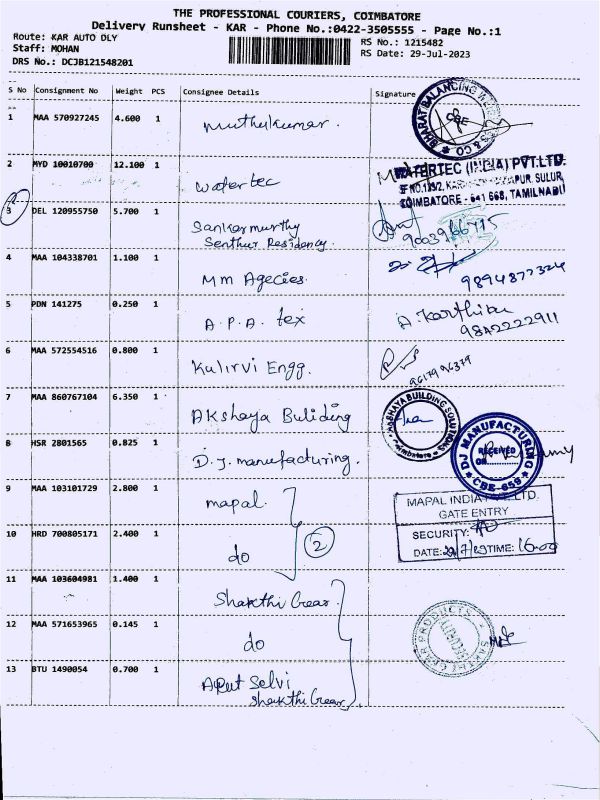 THE PROFESSIONAL COURIERS, COIMBATORE
Delivery Runsheet - KAR - Phone No.:0422-3505555 - Page No.:1
Route: KAR AUTO DLY
Staff: MOHAN
DRS No.: DCJB121548201
RS No.: 1215482
RS Date: 29-Jul-2023
S No Consignment No Weight PCS Consignee Details Signature
1 MAA 570927245 4.600 1 Muthukumar.
BHARAT BALANCING & CO
CBE
2 MYD 10010700 12.100 1 Watertec
WATERTEC (INDIA) PVT.LTD.
SULUR,
COIMBATORE - 641 668, TAMILNADU
3 DEL 120955750 5.700 1 Sankarmurthy
Senthur Residency
4 MAA 104338701 1.100 1 MM Agecies.
9894877324
5 PDN 141275 0.250 1 A.P.A. tex
A. Karthika
9842222911
6 MAA 572554516 0.800 1 Kulirvi Engg.
9617996379
7 MAA 860767104 6.350 1 AKshaya Buliding
AKSHAYA BUILDING SOLUTIONS
Coimbatore
8 HSR 2801565 0.825 1 D.J. manufacturing.
DJ MANUFACTURING
RECEIVED
ON
CBE-659
9 MAA 103101729 2.800 1 mapal.
MAPAL INDIA PVT. LTD.
GATE ENTRY
10 HRD 700805171 2.400 1 do
2
SECURITY:
DATE: 29/7/23 TIME: 16:00
11 MAA 103604981 1.400 1 Shakthi Gear.
12 MAA 571653965 0.145 1 do
SAKTHI GEAR PRODUCTS
13 BTU 1490054 0.700 1 Arut Selvi
Shakthi Gear